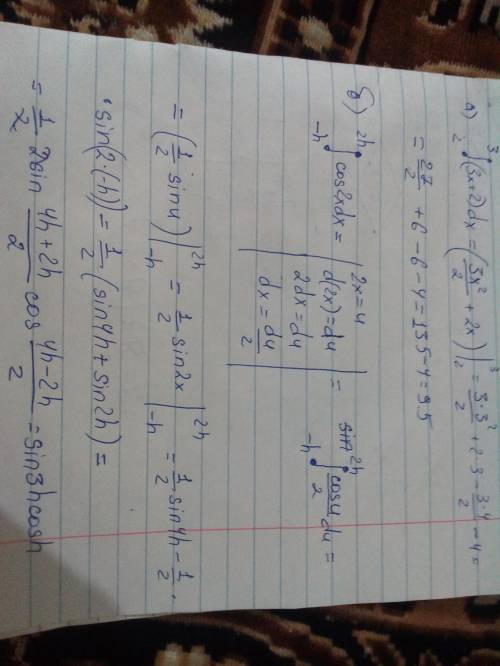 а) ₂∫³(3x+2)dx = (3x²/2 + 2x)|₂³ = 3·3²/2 + 2·3 - 3·4/2 - 4 =
= 27/2 + 6 - 6 - 4 = 13,5 - 4 = 9,5
б) ₋h∫²ʰ cos2xdx = | 2x = u
d(2x) = du
2dx = du
dx = du/2 | = ₋h∫²ʰ cosu/2 du =
= (1/2 sinu)|₋h²ʰ = 1/2 sin2x|₋h²ʰ = 1/2 sin4h - 1/2 ·
· sin(2·(-h)) = 1/2 (sin4h + sin2h) =
= 1/2 2sin 4h+2h/2 cos 4h-2h/2 = sin3hcosh